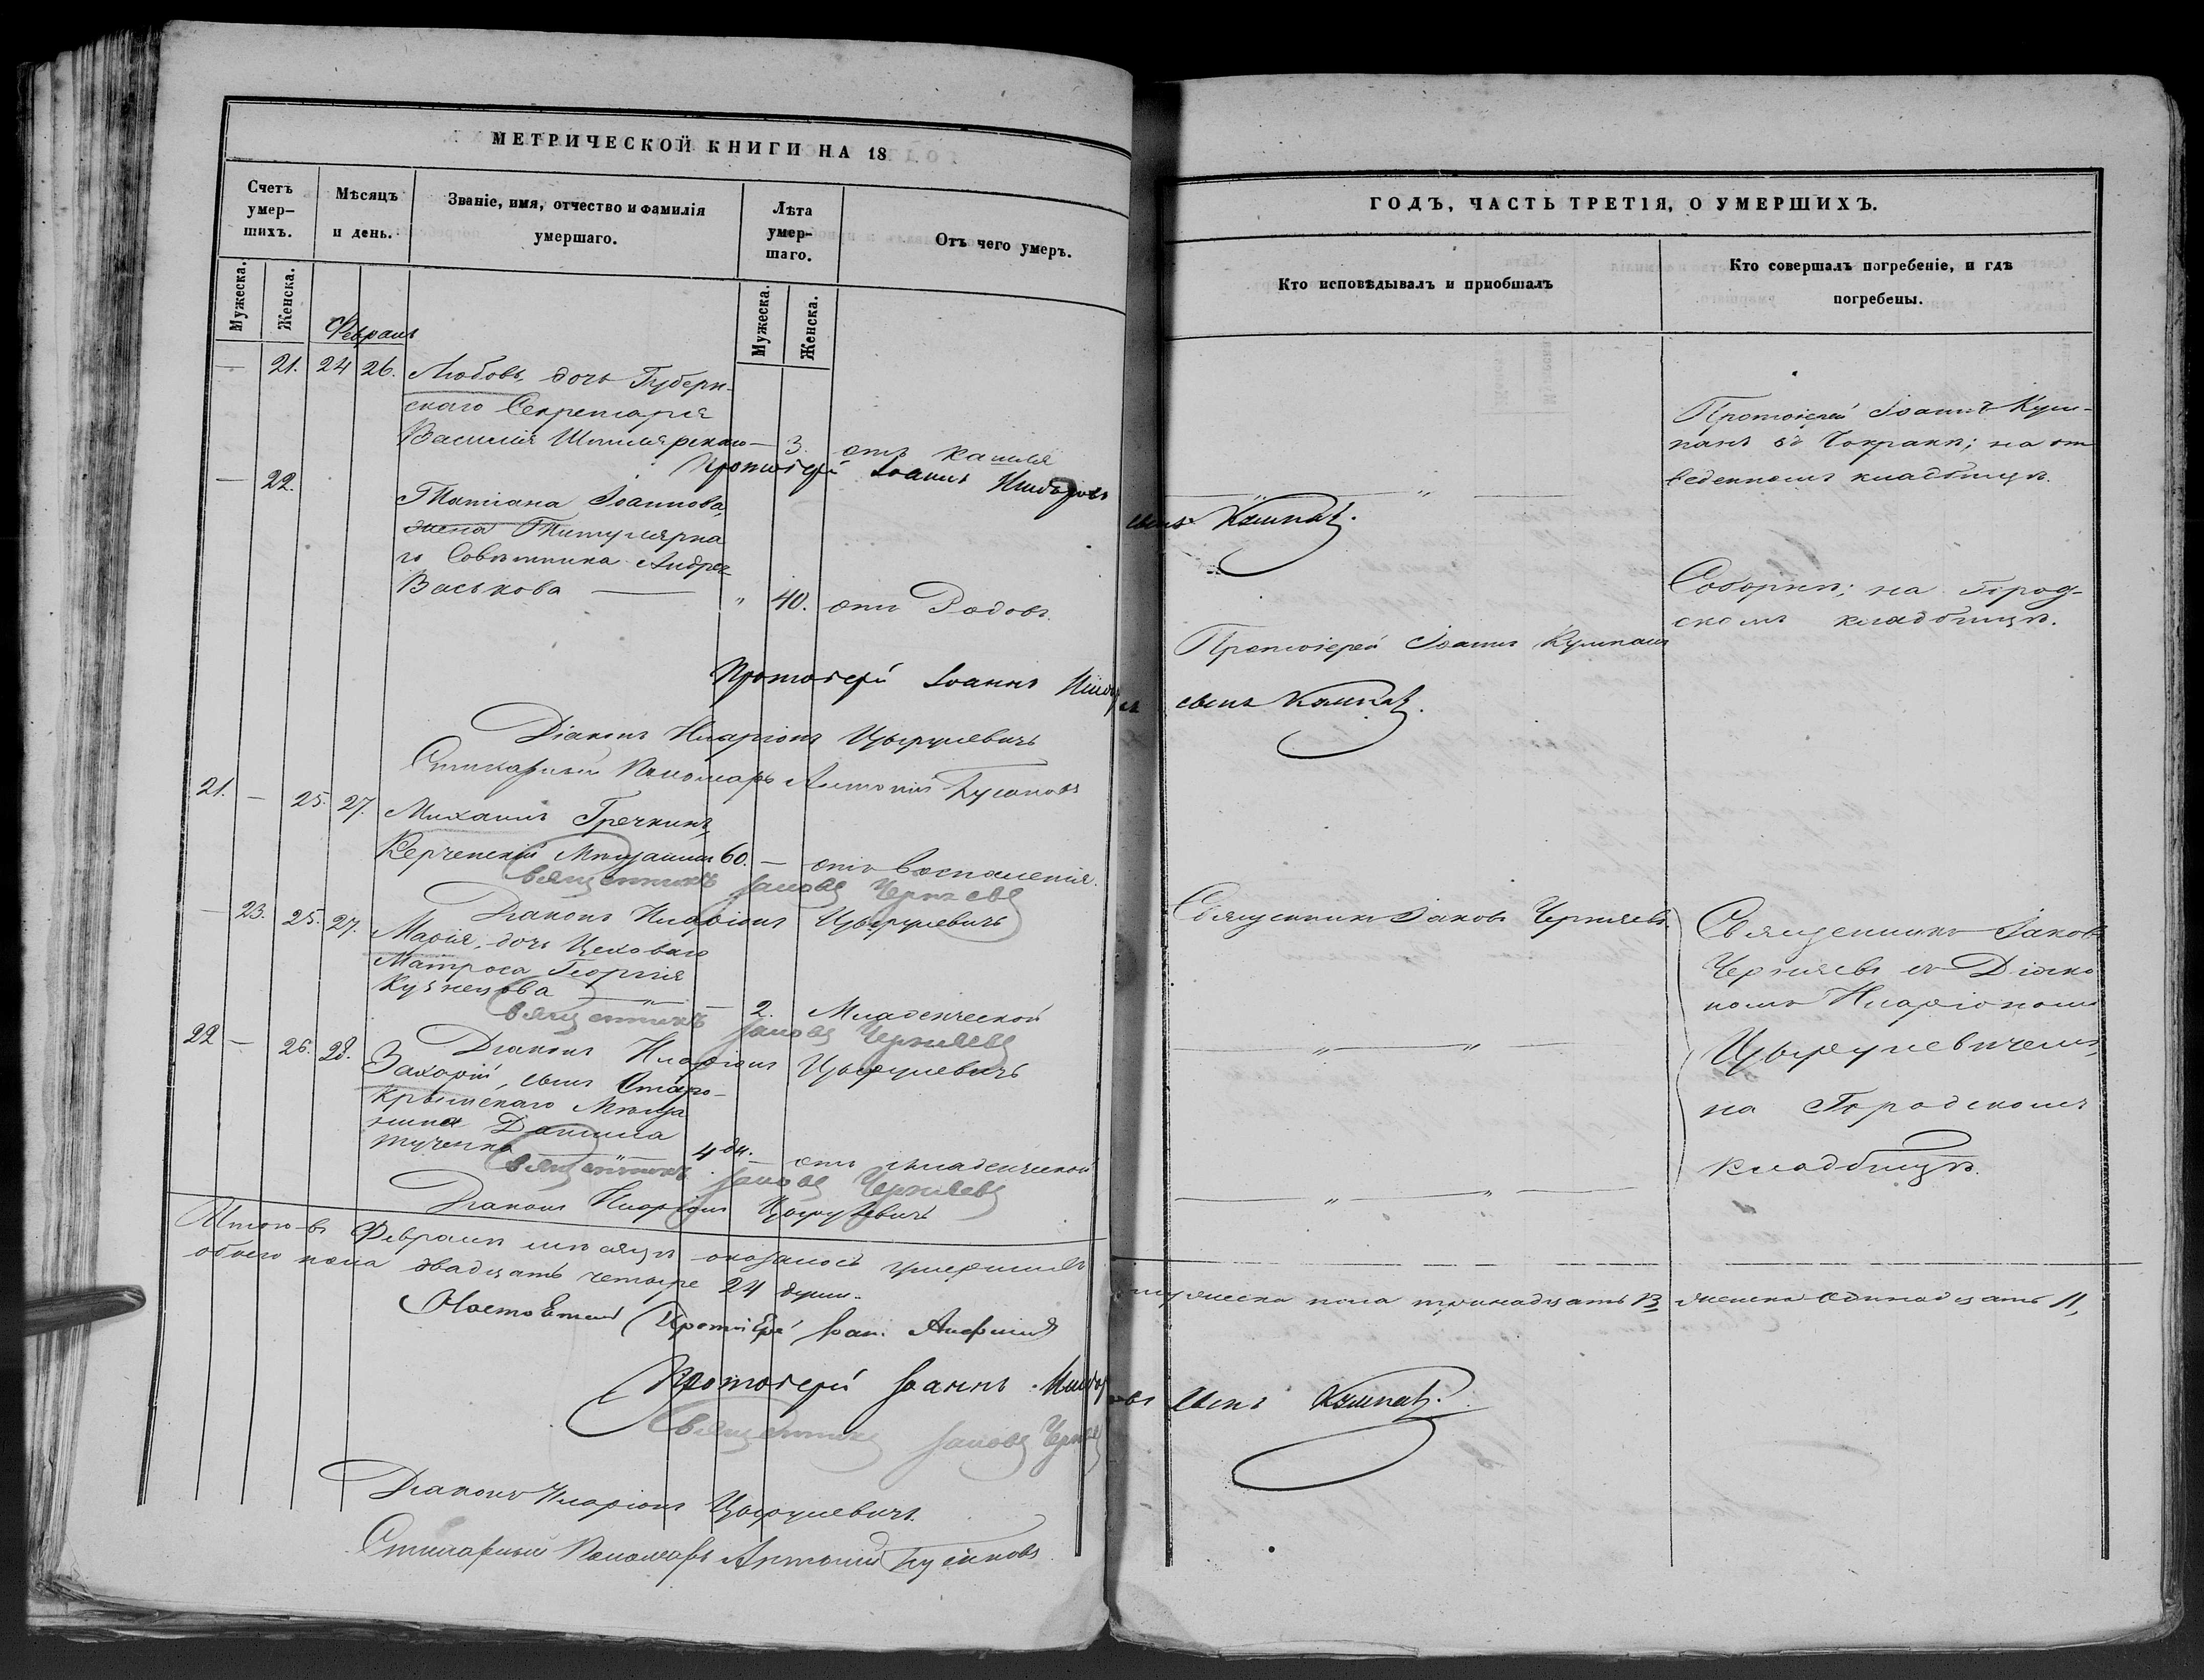 МЕТРИЧЕСКОЙ КНИГИ НА 18
Счетъ умер-
шихъ.
Мѣсяцъ
и день.
Званіе, имя, отчество и фамилія
умершаго.
Лѣта
умер-
шаго.
Отъ чего умеръ.
Мужеска.
Женска.
Мужеска.
Женска.
Февраль
— 21. 24 26. Любовь, дочь Губерн-
скаго Секретаря
Василія — 3. отъ кашля
Протоіерей Іоаннъ
— 22.
Татіана Іоаннова,
жена Титулярна
го Совѣтника Андрея
Васькова — „ 40. отъ Родовъ.
Протоіерей Іоаннъ
Діаконъ Иларіонъ Цырулевичъ
Стихарный Пономарь Антоній
21. — 25. 27. Михаилъ Гречкинъ,
Керченскій Мѣщанинъ 60. — отъ воспаленія.
Священникъ Іаковъ Черняевъ
Діаконъ Иларіонъ Цырулевичъ
— 23. 25. 27.
Марія, дочь Цеховаго
Матроса Георгія
Кузнецова — „ — 2. Младенческой
Священникъ Іаковъ Черняевъ
Діаконъ Иларіонъ Цырулевичъ
22 — 26. 28.
Захарій, сынъ Старо-
крымскаго Мѣща
нина Даніила
— „ — 4 дн. — отъ младенческой
Священникъ Іаковъ Черняевъ
Діаконъ Иларіонъ Цырулевичъ
Итого въ Февралѣ мѣсяцѣ оказалось умершихъ
обоего пола двадцать четыре 24 души.
Протоіерей
Протоіерей Іоаннъ
Священникъ Іаковъ
Діаконъ Иларіонъ Цырулевичъ.
Стихарный Пономарь Антоній
ГОДЪ, ЧАСТЬ ТРЕТІЯ, О УМЕРШИХЪ.
Кто исповѣдывалъ и приобщалъ
Кто совершалъ погребеніе, и гдѣ
погребены.
Протоіерей Іоаннъ Кум-
панъ въ ; на от
веденномъ кладбищѣ.
— „ — „ —
сынъ Кумпанъ.
Соборнѣ; на Город-
скомъ кладбищѣ.
Протоіерей Іоаннъ Кумпанъ
сынъ Кумпанъ.
Священникъ Іаковъ Черняевъ.
Священникъ Іаковъ
Черняевъ съ Діако
номъ Иларіономъ
— „ — „ —
Цырулевичемъ,
на Городскомъ
кладбищѣ.
— „ — „ —
мужеска пола тринадцать 13 женска одинадцать 11,
сынъ Кумпанъ.